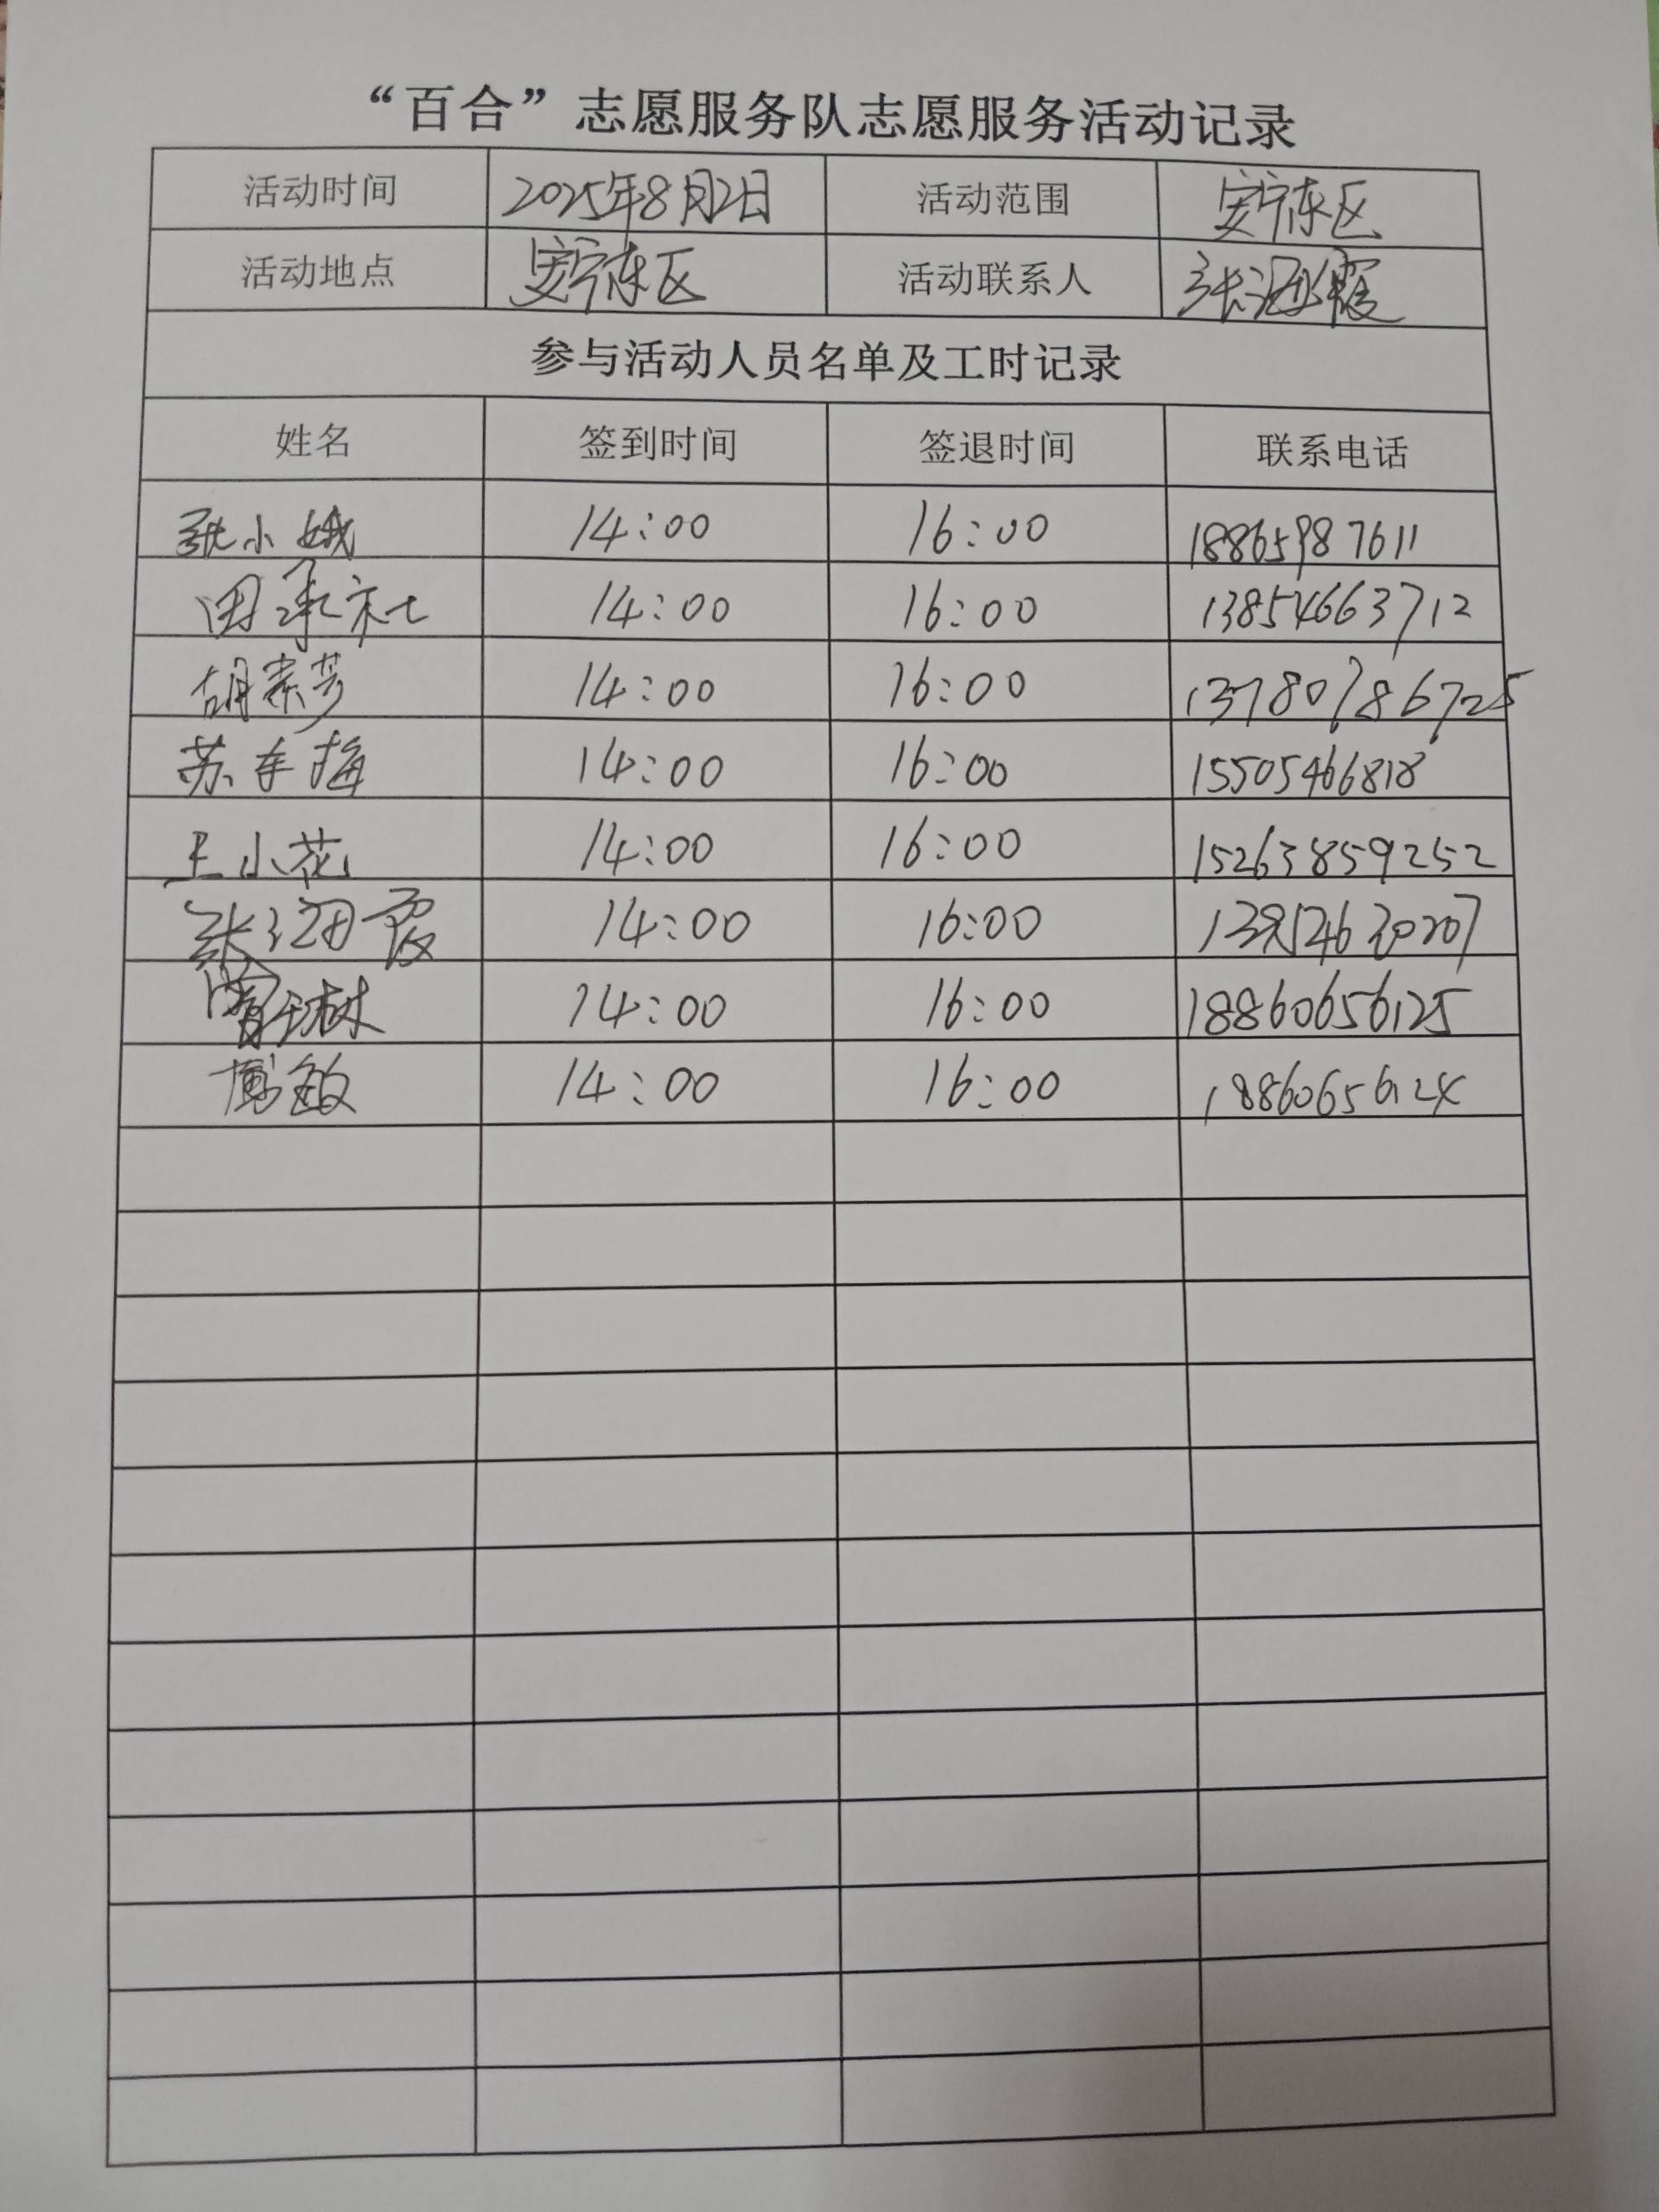 “百合”志愿服务队志愿服务活动记录
活动时间 2025年8月2日 活动范围 安宁东区
活动地点 安宁东区 活动联系人 张海霞
参与活动人员名单及工时记录
姓名 签到时间 签退时间 联系电话
张小娥 14:00 16:00 18865987611
田承社 14:00 16:00 13854663712
胡素芳 14:00 16:00 13780786725
苏冬梅 14:00 16:00 15505466818
王小花 14:00 16:00 15263859252
张海霞 14:00 16:00
14:00 16:00 18860656125
14:00 16:00 18860656124